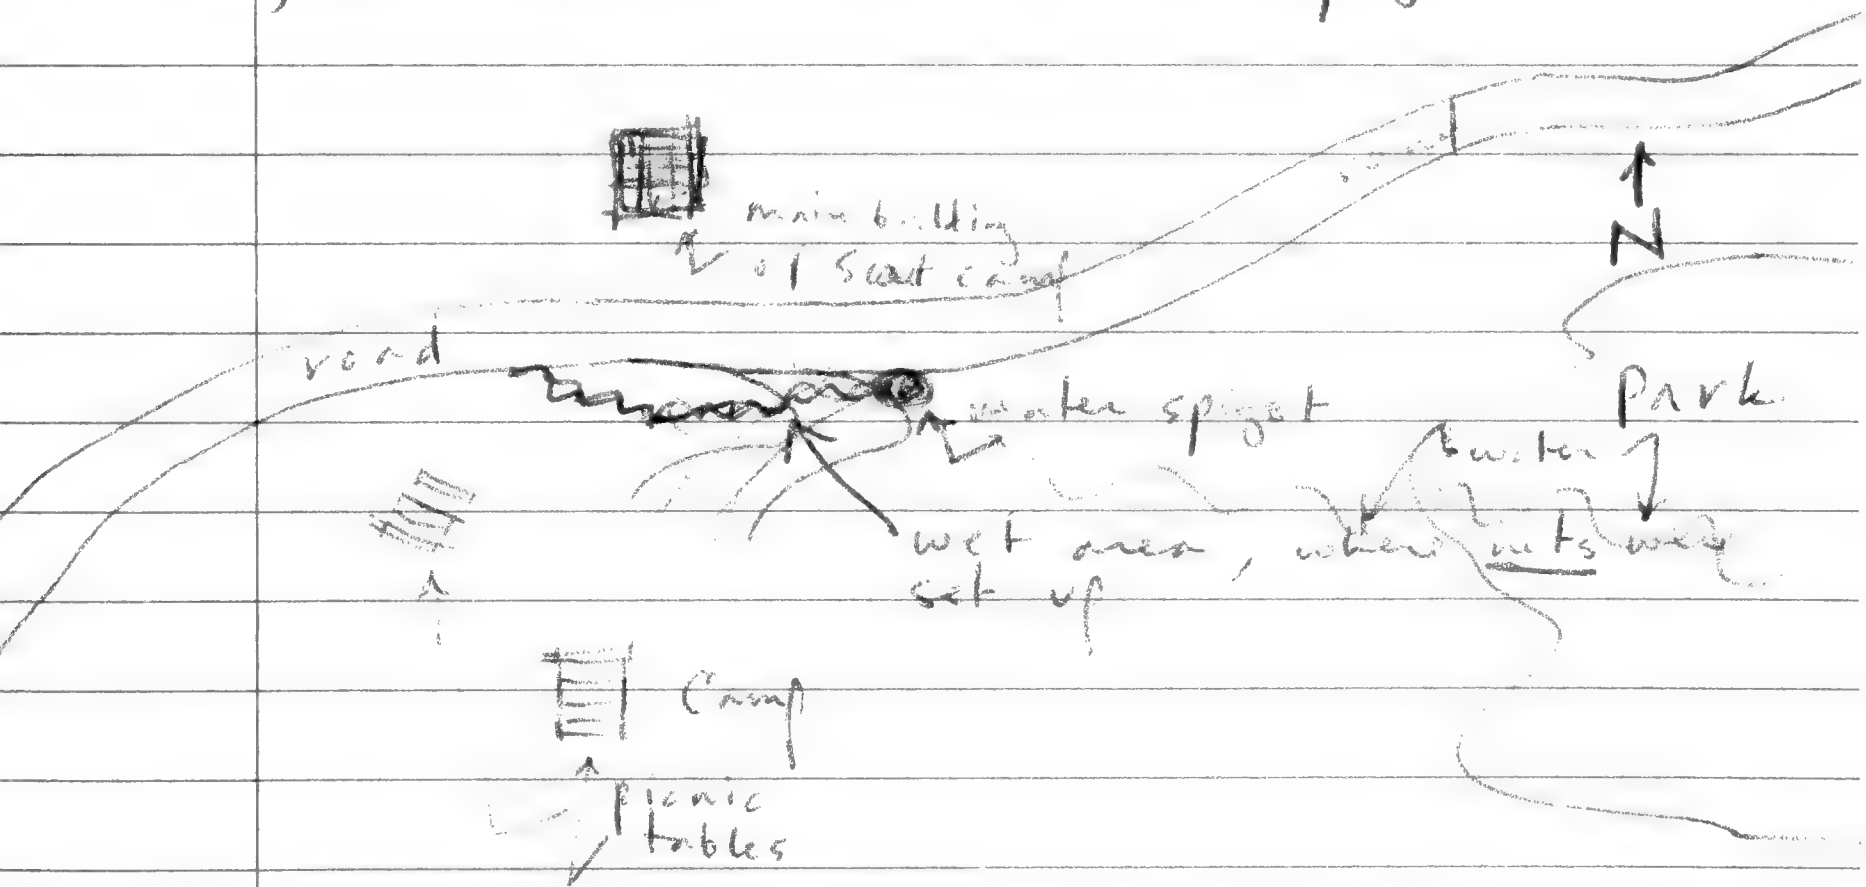 main building
of Scout camp
N
road
Park
water spigot
water
wet area, where nets were
set up
Camp
picnic
tables